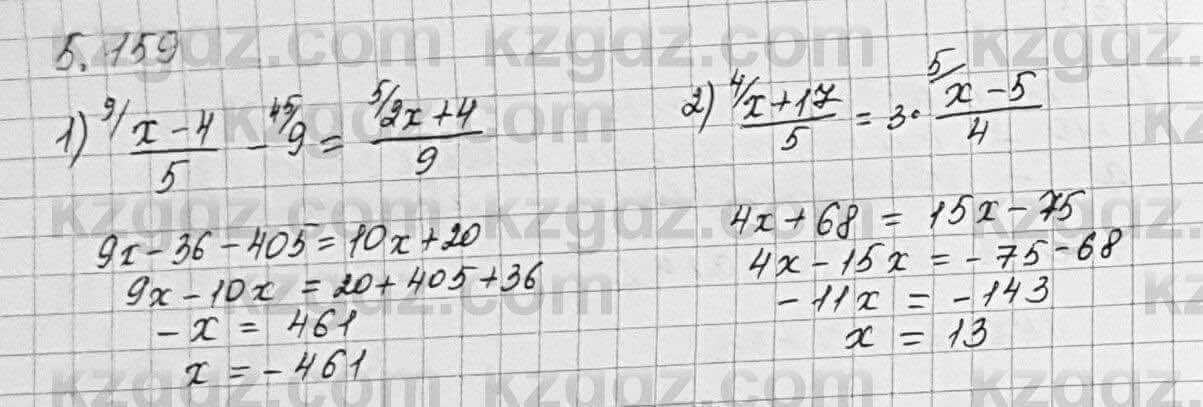 5.159
1) 9/ x-4 / 5 - 45/ 9 = 5/ 2x+4 / 9
9x-36-405=10x+20
9x-10x = 20+405+36
-x = 461
x = -461
2) 4/ x+17 / 5 = 3· 5/ x-5 / 4
4x+68 = 15x-75
4x-15x = -75-68
-11x = -143
x = 13
kzgdz.com kzgdz.com kzgdz.com